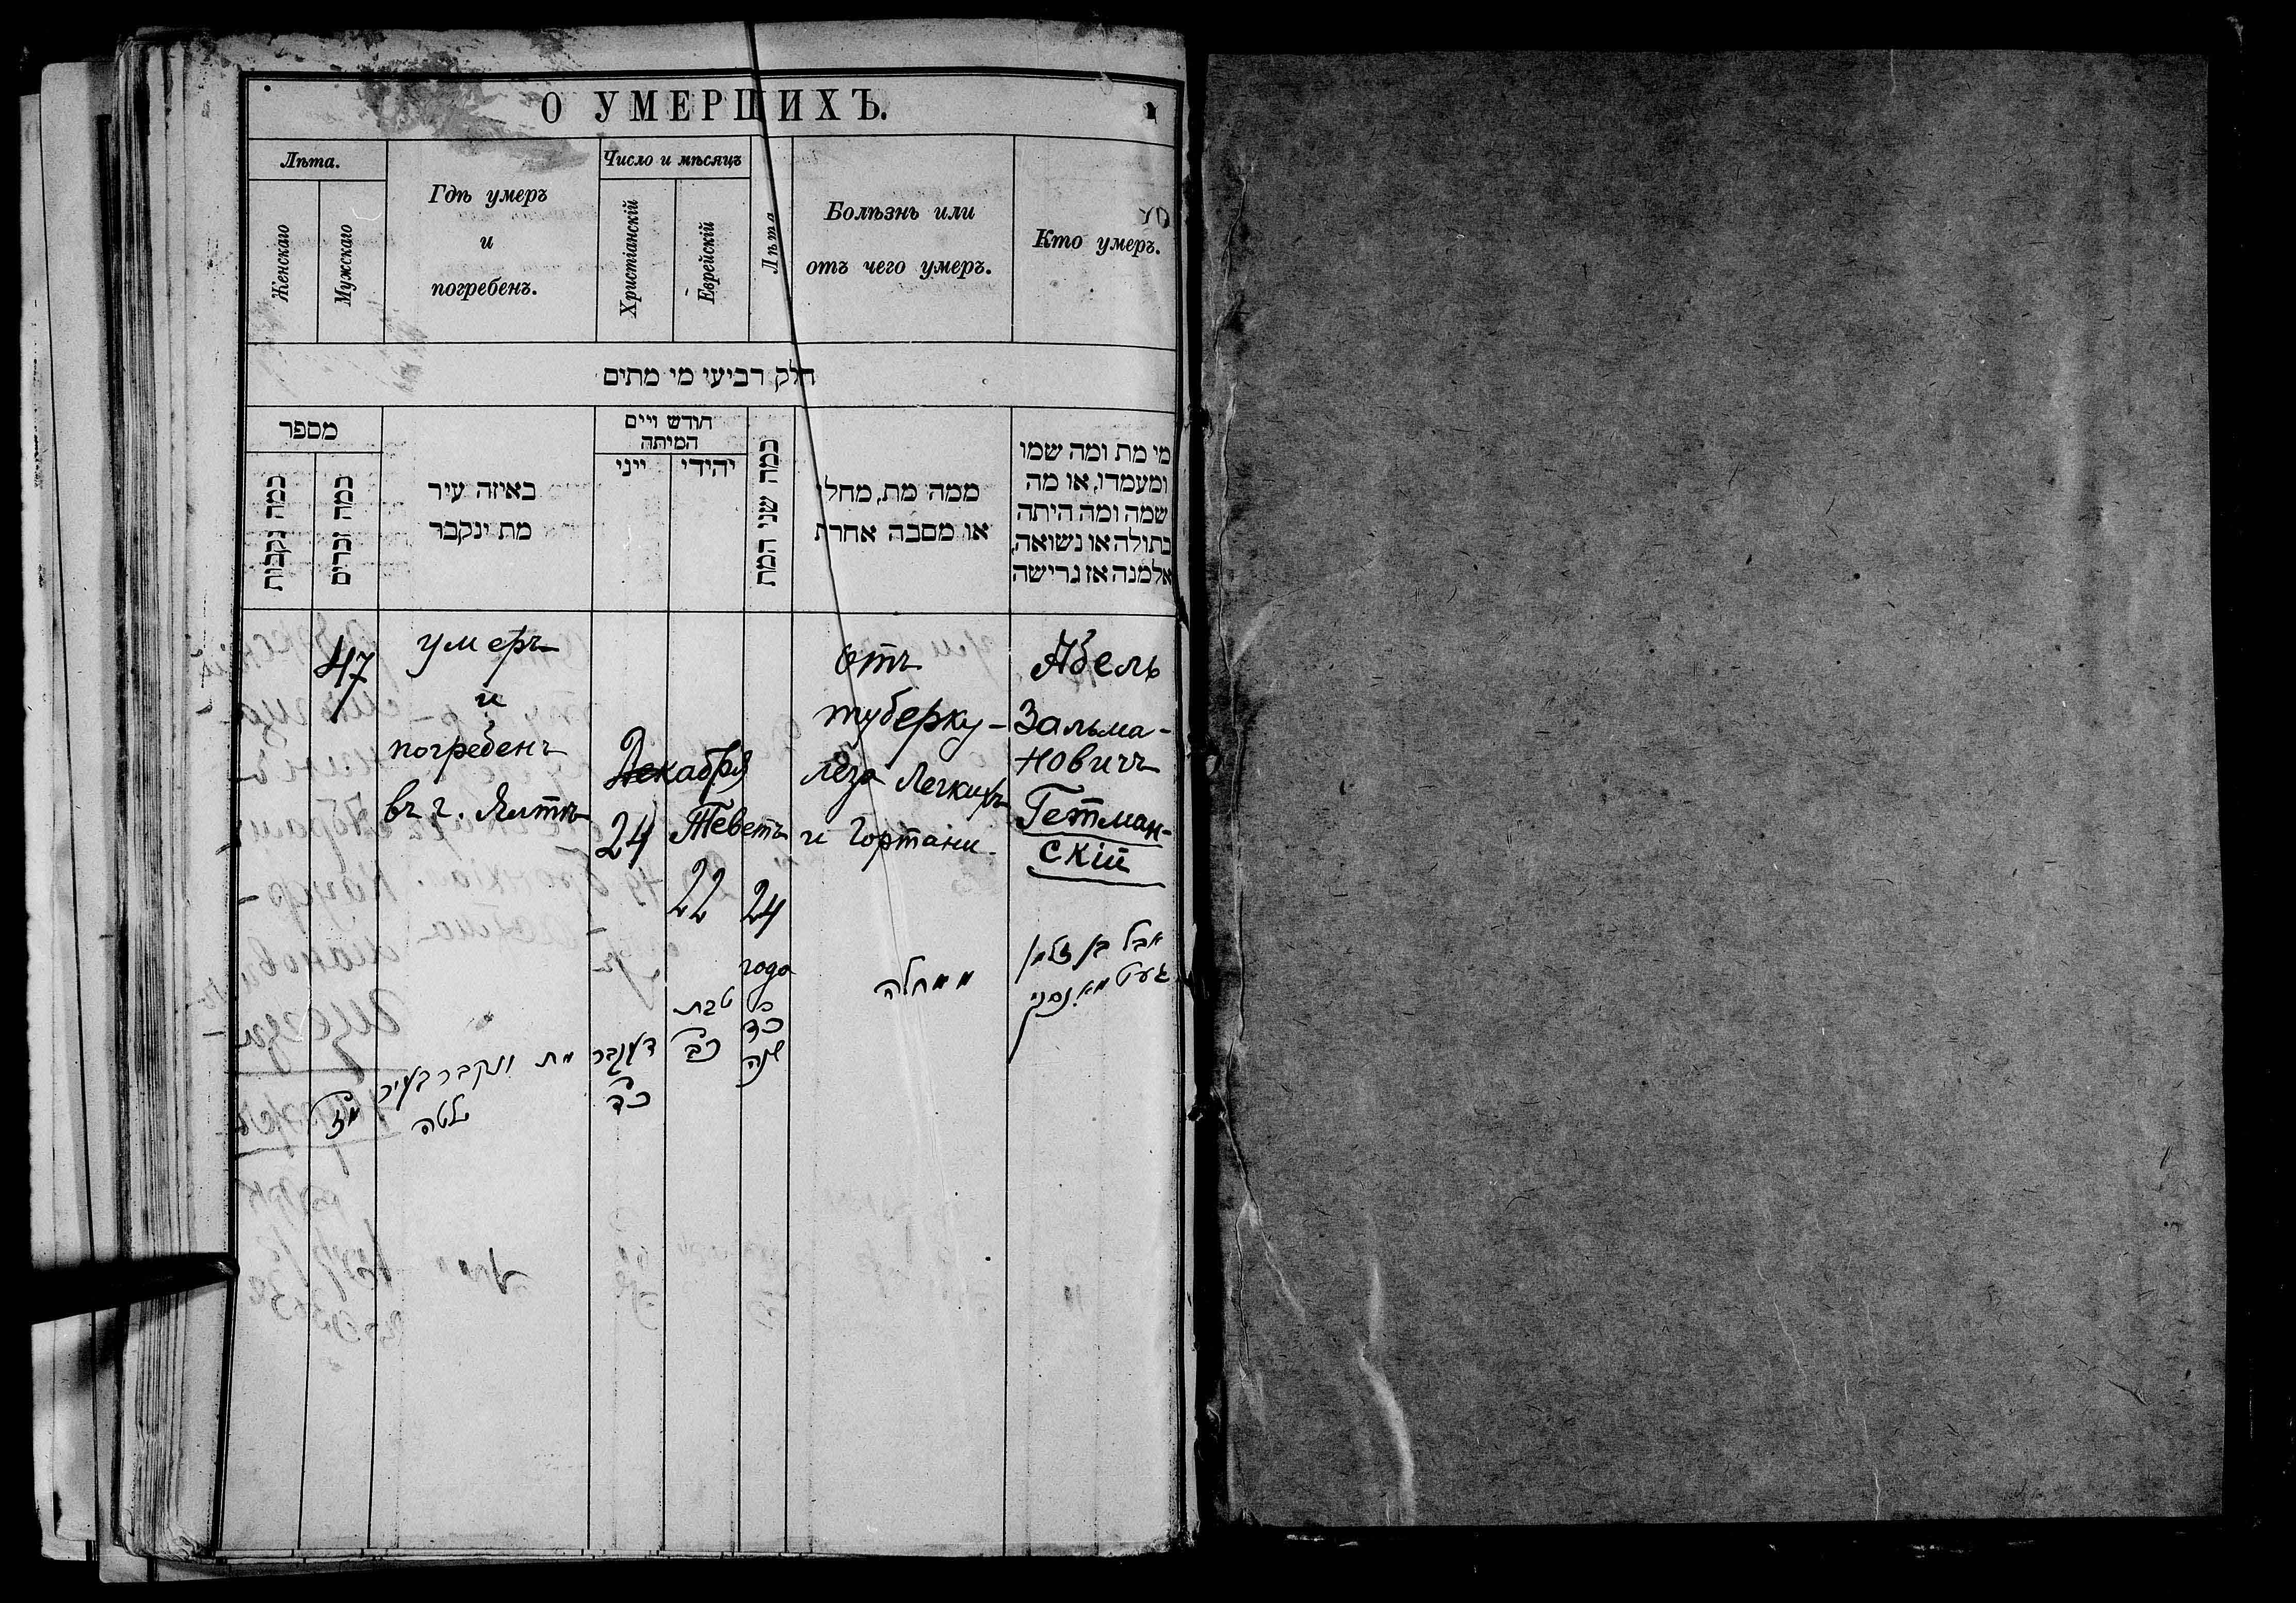 О УМЕРШИХЪ.
Лѣта.
Женскаго
Мужскаго
Гдѣ умеръ
и
погребенъ.
Число и мѣсяцъ
Христіанскій
Еврейскій
Лѣта
Болѣзнь или
отъ чего умеръ.
Кто умеръ.
חלק רביעי מי מתים
מספר
כמה נקבות
כמה זכרים
באיזה עיר
מת ונקבר
חודש ויים
המיתה
ייני
יהודי
כמה שני המת
ממה מת, מחלי
או מסבה אחרת
מי מת ומה שמו
ומעמדו, או מה
שמה ומה היתה
בתולה או נשואה,
אלמנה או גרושה
47
умеръ
и
погребенъ
въ г. Ялтѣ
Декабря
24
Теветъ
22
24
года
Отъ
туберку-
лёза Легкихъ
и Гортани.
Абель
Зальма-
новичъ
Гетман-
скій
מז
מת ונקבר בעיר
יאלטה
דעקבר
כד
טבת
כב
כד
שנה
ממחלה
אבל בן זלמן
געטמאנסקי